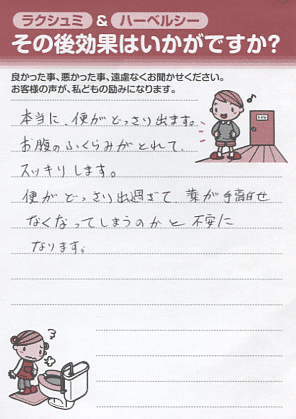 ラクシュミ & ハーベルシー
その後効果はいかがですか?
良かった事、悪かった事、遠慮なくお聞かせください。
お客様の声が、私どもの励みになります。
本当に、便がどっさり出ます。
お腹のふくらみがとれて、
スッキリします。
便がどっさり出過ぎて、薬が手離せ
なくなってしまうのかと不安に
なります。